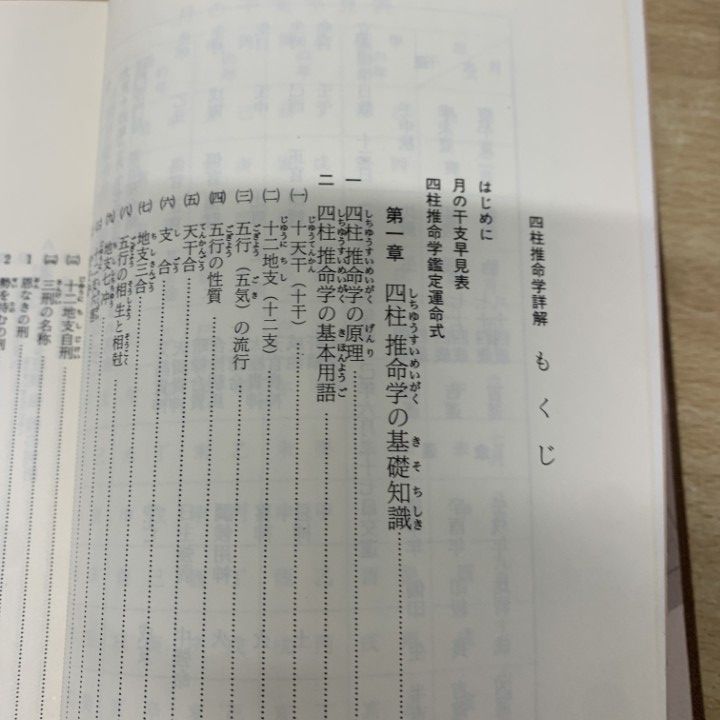 四柱推命学詳解 もくじ
はじめに
月の干支早見表
四柱推命学鑑定運命式
第一章 四柱推命学の基礎知識
一 四柱推命学の原理
二 四柱推命学の基本用語
㈠ 十天干（十干）
㈡ 十二地支（十二支）
㈢ 五行（五気）の流行
㈣ 五行の性質
㈤ 天干合
㈥ 支合
㈦ 地支三合
㈧ 五行の相生と相剋
㈨ 地支七冲
十二地支自刑
三刑の名称
1 恩なきの刑
2 勢を恃むの刑